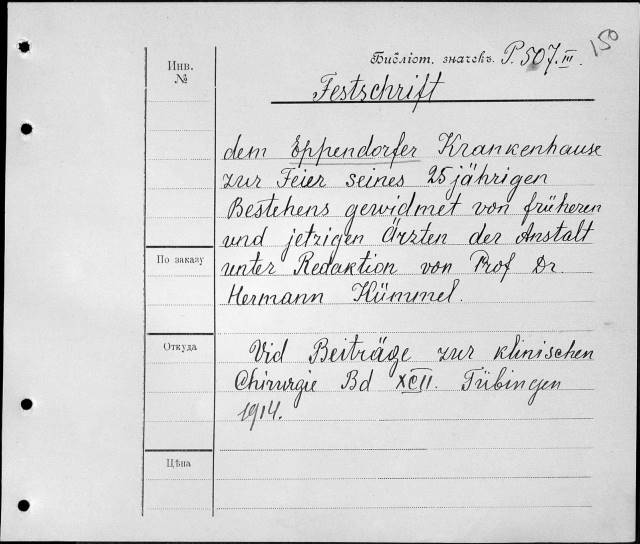 150
Библіот. значекъ. P. 507. III.
Инв.
№
Festschrift
dem Eppendorfer Krankenhause
zur Feier seines 25 jährigen
Bestehens gewidmet von früheren
und jetzigen Ärzten der Anstalt
По заказу
unter Redaktion von Prof Dr.
Hermann Kümmel.
Откуда
Vid Beiträge zur klinischen
Chirurgie Bd XCII. Tübingen
1914.
Цѣна